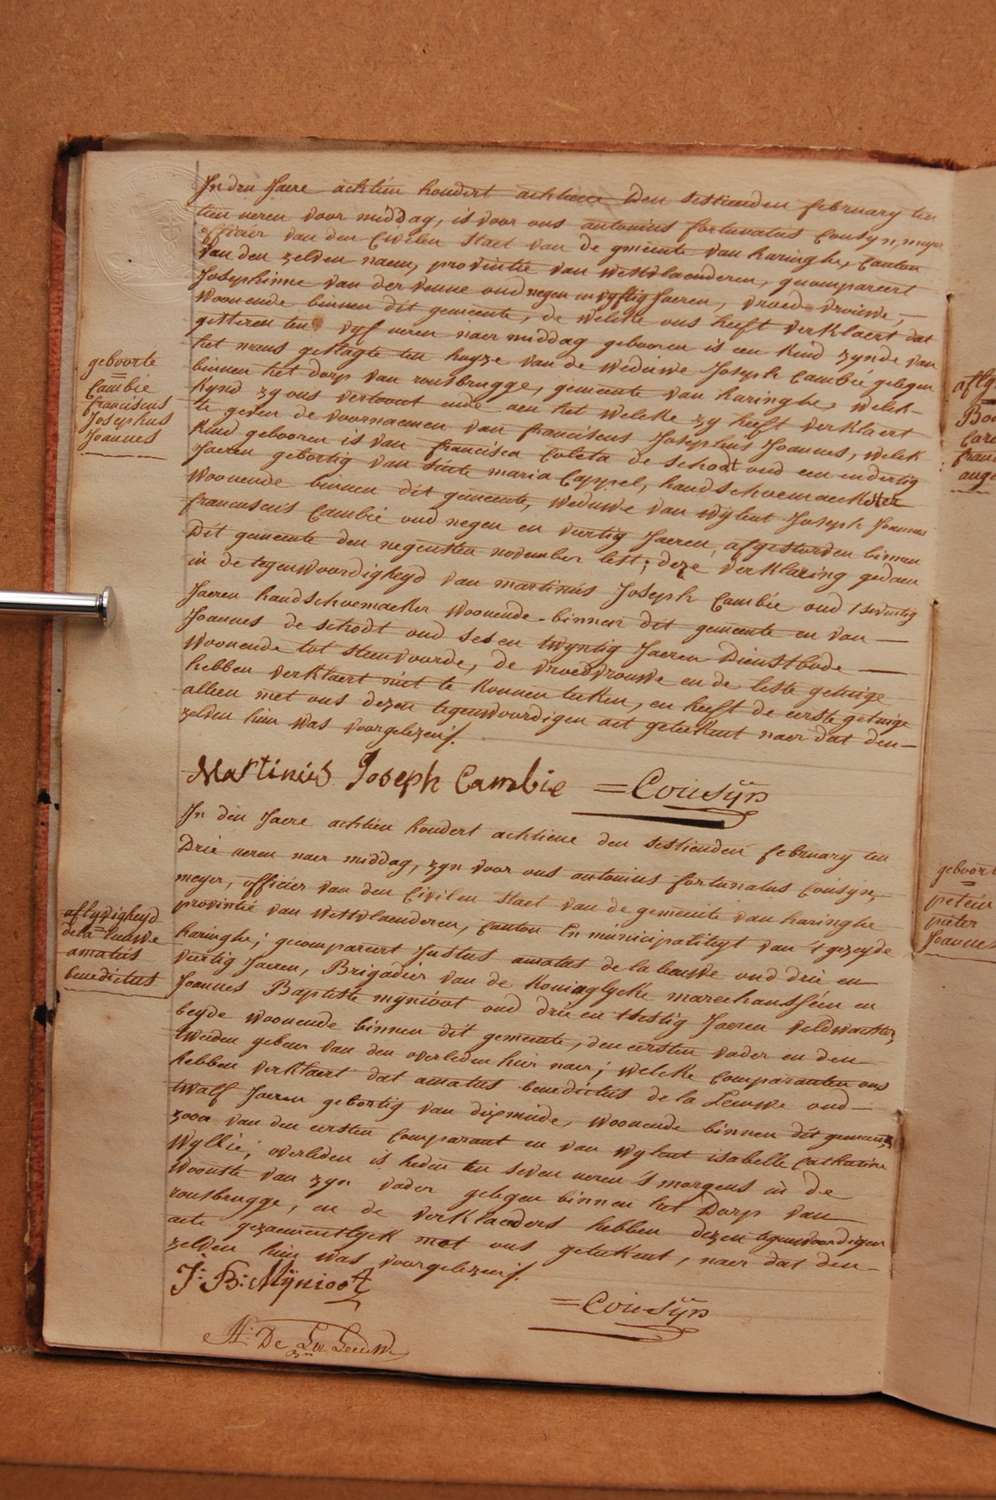 In den Jaere achtien hondert achtiene Den sestienden february ten
tien ueren voor middag, is voor ons antonius fortunatus Cousyn, meyer
officier van den Civilen Staet van de gmeente van haringhe, Canton
van den zelven naem, provintie van westvlaenderen, gecompareert
Josephinne van der venne oud negen en vyftig Jaeren, vroed-vrouwe,
woonende binnen dit gemeente, de welcke ons heeft verklaert dat
gisteren ten vyf ueren naer middag gebooren is een kind zynde van
het mans geslagte ten huyze van de weduwe Joseph Cambié gelegen
binnen het dorp van rousbrugge, gemeente van haringhe, welck-
kynd zy ons vertoont ende aen het welcke zy heeft verklaert
te geven de voornaemen van franciscus Josephus Joannes, welck
kind gebooren is van francisca Coleta de schodt oud een en dertig
Jaeren gebortig van sinte maria Cappel, handschoemaeckster
woonende binnen dit gemeente, weduwe van wylent Joseph Joannes
franciscus Cambié oud negen en veertig Jaeren, afgestorven binnen
Dit gemeente den negensten november lest; deze verklaring gedaen
in de tegenwoordigheyd van martinus Joseph Cambie oud sevintig
Jaeren handschoemaeker woonende binnen dit gemeente en van
Joannes de schodt oud ses en twyntig Jaeren Dienstbode
woonende tot steenvoorde, de vroedvrouwe en de leste getuige
hebben verklaert niet te konnen teeken, en heeft de eerste getuige
alleen met ons dezen tegenwoordigen act geteekent naer dat den
zelven hun was voorgelezen /.
Martinus Joseph Cambie =Cousÿn
geboorte
Cambié
franciscus
Josephus
Joannes
In den Jaere achtien hondert achtiene den sestienden february ten
Drie ueren naer middag, zyn voor ons antonius fortunatus Cousyn,
meyer, officier van den Civilen staet van de gemeente van haringhe
provintie van westvlaenderen, canton En municipatiteyt van 't gezeyde
haringhe; gecompareert Justus amatus de la leuwe oud drie en
viertig Jaeren, Brigadier van de Koninglycke marechausséen en
Joannes Baptiste mynioot oud drie en tsestig Jaeren veldwachter
beyde woonende binnen dit gemeente, den eersten vader en den
tweeden gebeur van den overleden hier naer; welcke comparanten ons
hebben verklaert dat amatus benedictus de la Leuwe oud
twalf Jaeren gebortig van dixmude, woonende binnen dit gemeente,
zoon van den eersten comparant en van wylent isabelle catharine
Wyllie; overleden is heden ten seven ueren 's morgens in de
woonste van zyn vader gelegen binnen het Dorp van
rousbrugge, en de verklaeders hebben dezen tegenwoordigen
acte gezaementlyck met ons geteekent, naer dat den
zelven hun was voorgelezen /.
aflyvigheyd
de la leuwe
amatus
benedictus
J: B: Mÿnioot =Cousÿn
A: De La Leuwe
geboort
petein
pieter
Joannes